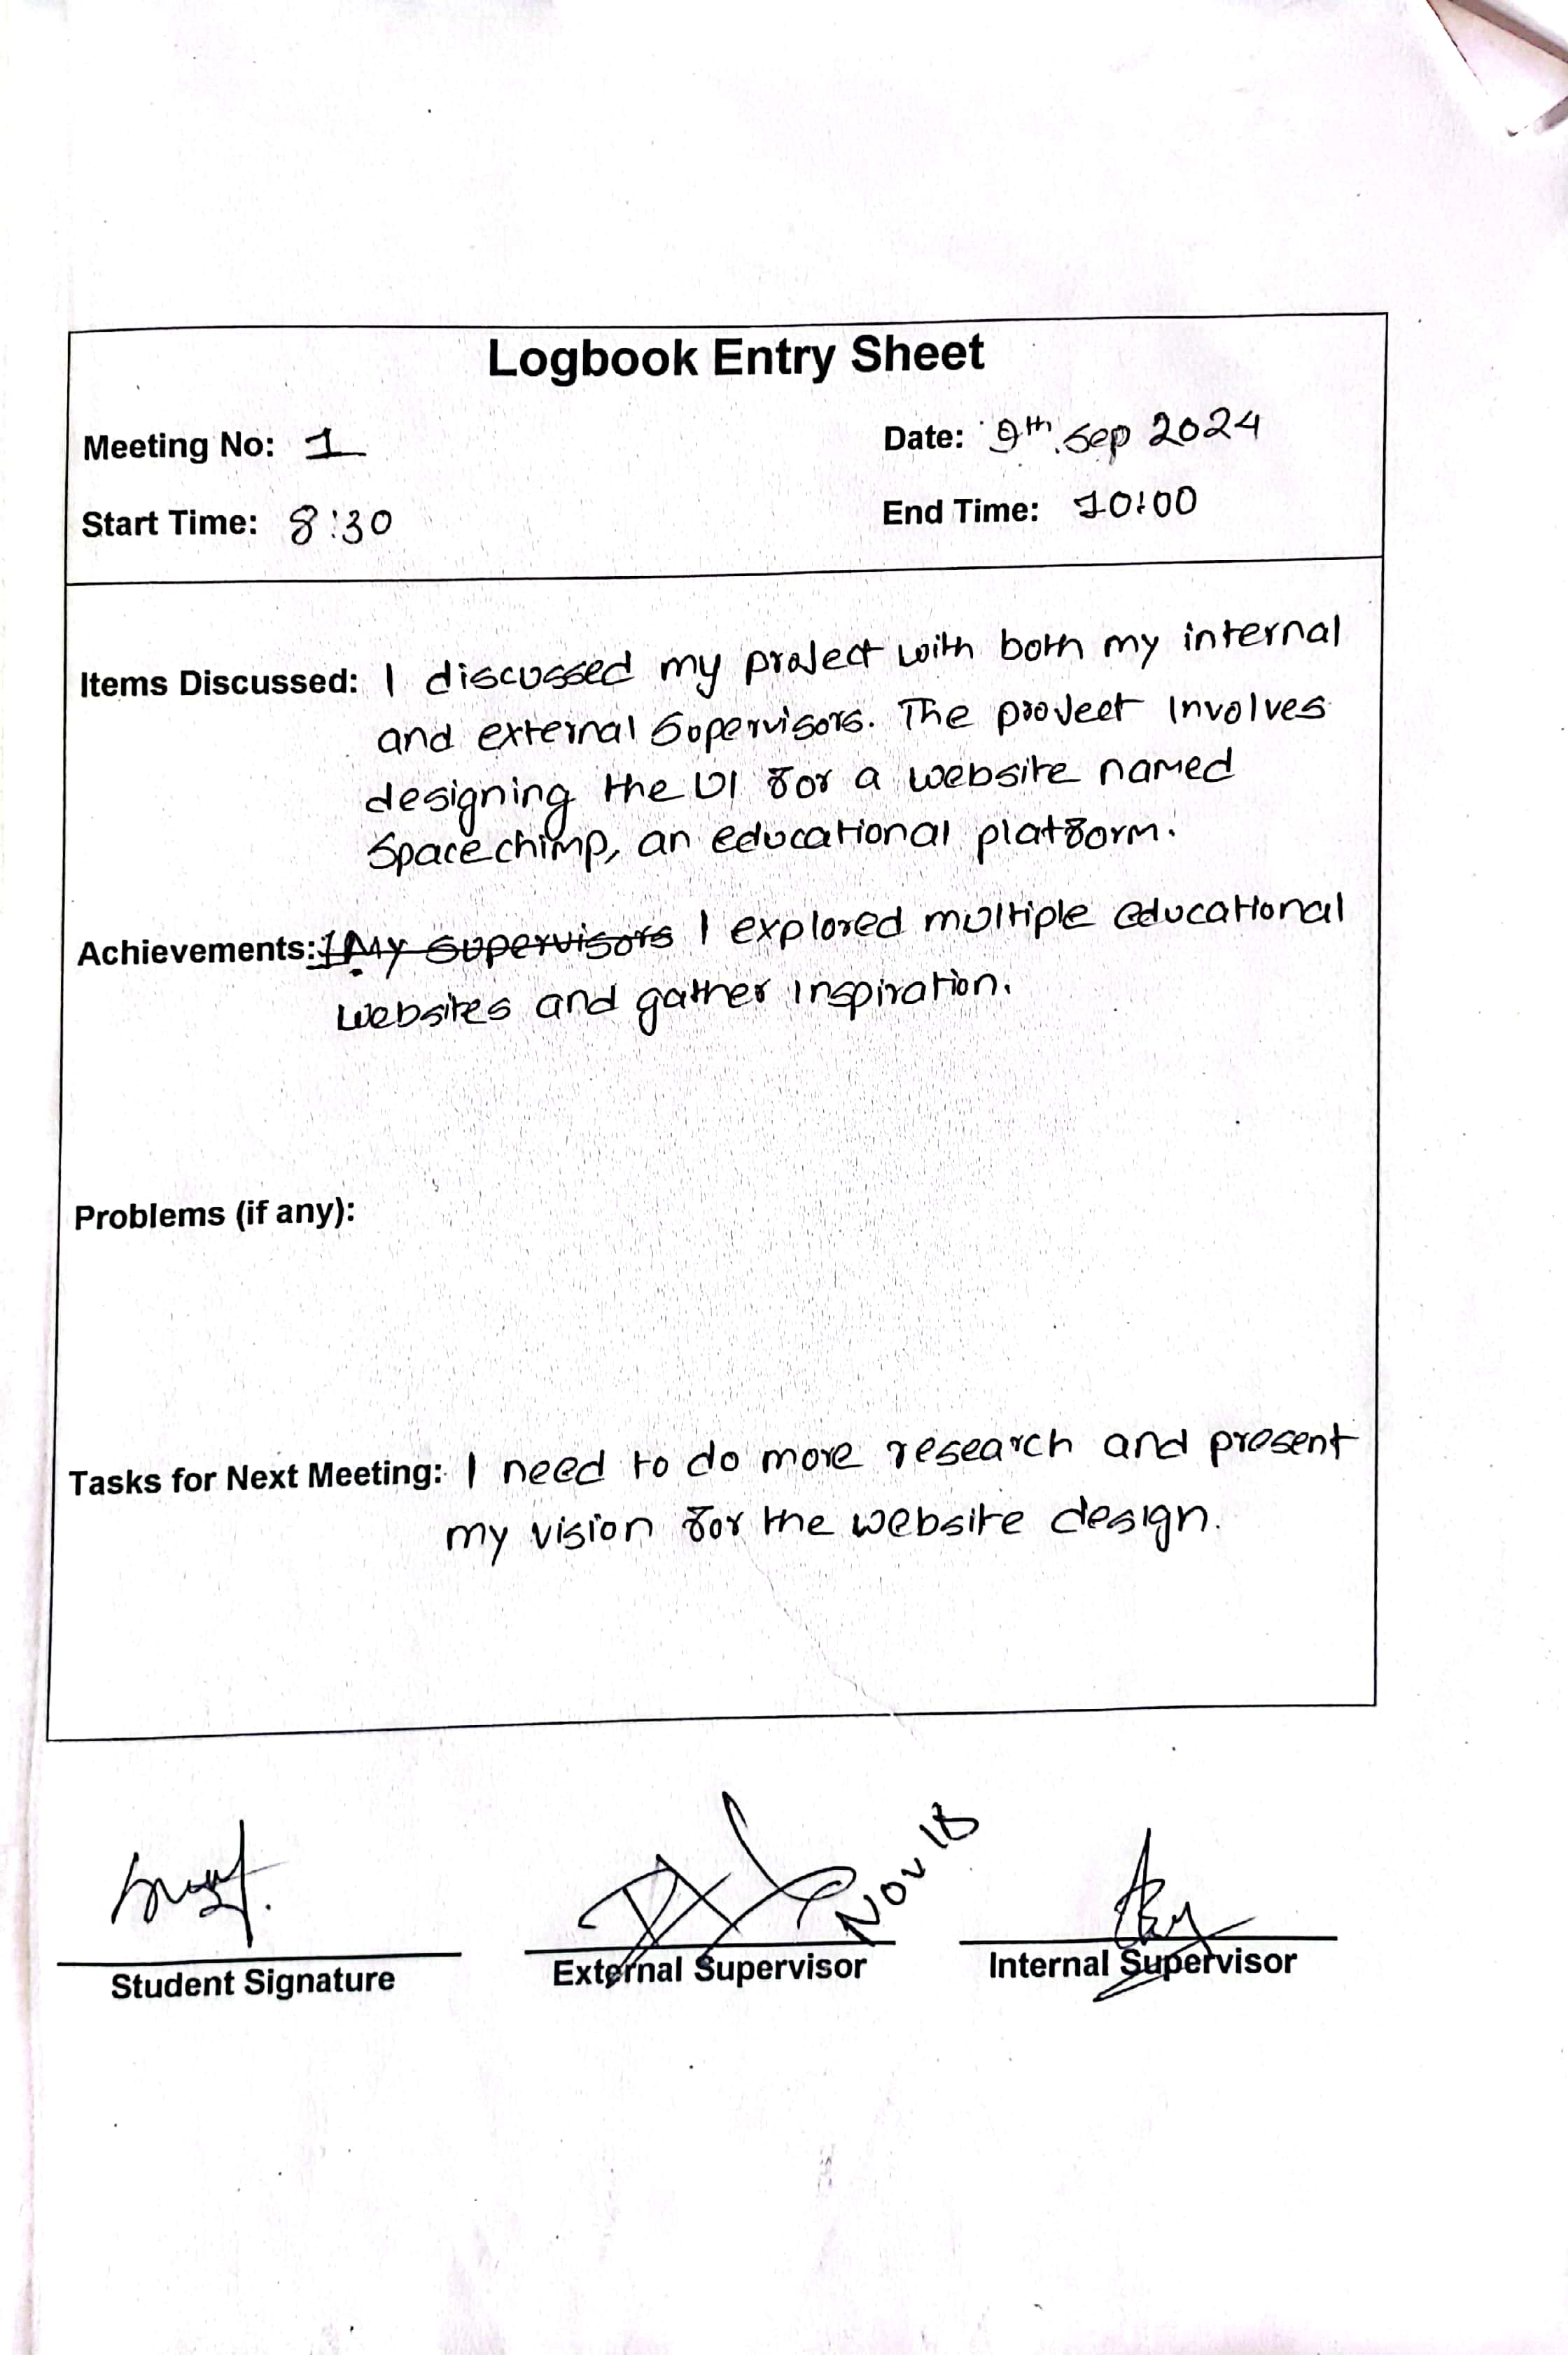 Logbook Entry Sheet
Meeting No: 1
Date: 9th Sep 2024
Start Time: 8:30
End Time: 10:00
Items Discussed: I discussed my project with both my internal
and external Supervisors. The project involves
designing the UI for a website named
Spacechimp, an educational platform.
Achievements: 1. My supervisors I explored multiple educational
websites and gather inspiration.
Problems (if any):
Tasks for Next Meeting: I need to do more research and present
my vision for the website design.
Nov 18
Student Signature
External Supervisor
Internal Supervisor